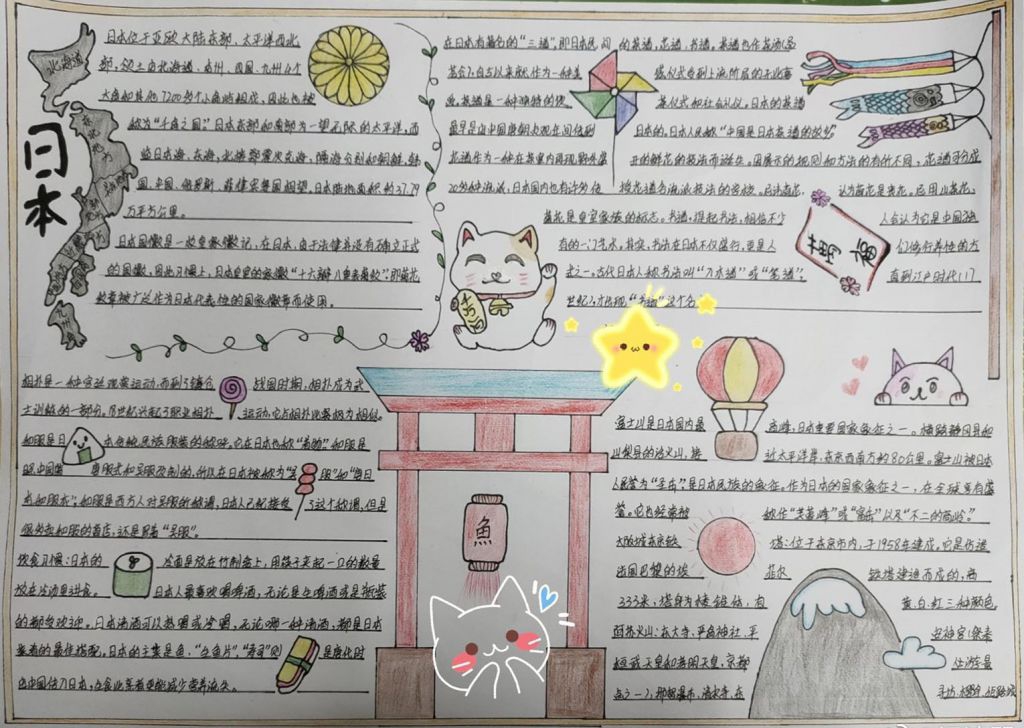 日本
北海道
九州
日本位于亚欧大陆东部、太平洋西北
部,领土由北海道、本州、四国、九州4个
大岛和其他7200多个小岛屿组成,因此也被
称为“千岛之国”。日本东部和南部为一望无际的太平洋,西
临日本海、东海,北接鄂霍次克海,隔海分别和朝鲜、韩
国、中国、俄罗斯、菲律宾等国相望,日本陆地面积约37.79
万平方公里。
日本国徽是一枚皇家徽记,在日本,由于法律并没有确立正式
的国徽,因此习惯上,日本皇室的家徽“十六瓣八重表菊纹”,即菊花
纹章被广泛作为日本代表性的国家徽章而使用。
在日本有著名的“三道”,即日本民间的茶道,花道,书道,茶道也作茶汤(品
茗会),自古以来就作为一种美感仪式受到上流阶层的无比喜
爱。茶道是一种独特的茶仪式和社会礼仪,日本的茶道
最早是由中国唐朝贞观年间传到日本的。日本人民称“中国是日本茶道的故乡”
花道作为一种在茶室内再现野外盛开的鲜花的技法而诞生。因展示的规则和方法的有所不同,花道可分成
20多种流派,日本国内也有许多传授花道各流派技法的学校。
菊花是皇室家族的标志。书道,提起书法,相信不少
有的一门艺术,其实,书法在日本不仅盛行,更是人们修行养性的方
式之一。古代日本人称书法叫“入木道”或“笔道”,直到江户时代(17
世纪),才出现“书道”这个名
福
相扑是一种宫廷观赏运动,而到了镰仓战国时期,相扑成为武
士训练的一部分。18世纪兴起了职业相扑运动,它与相扑比赛极为相似。
和服是日本传统民族服装的称呼。它在日本也称“着物”和服是
照中国唐服式和吴服改制的,所以在日本被称为“吴服”和“唐日
本和服衣”,和服是西方人对吴服的称谓,日本人已经接受了这个称谓,但是
很多卖和服的商店,还是写着“吴服”。
饮食习惯:日本的冷面是放在竹制器上,用筷子夹起一口的数量
放在冷汤里沾食。日本人最喜欢喝啤酒,无论是生啤酒或是瓶装
的都受欢迎。日本清酒可以热喝或冷喝,无论哪一种清酒,都是日本
菜肴的最佳搭配。日本的主菜是鱼,“生鱼片”,“寿司”则是唐代时
由中国传入日本,
魚
富士山是日本国内最高峰,日本重要国家象征之一。横跨静冈县和
山梨县的活火山,接近太平洋岸,东京西南方约80公里。富士山被日本
人民誉为“圣岳”,是日本民族的象征。作为日本的国家象征之一,在全球享有盛
誉。它也经常被称作“芙蓉峰”或“富岳”以及“不二的高岭”。
塔:位于东京市内,于1958年建成,它是仿造
法国巴黎的埃菲尔铁塔建造而成的,高
333米,塔身为棱锥体,有黄、白、红三种颜色,